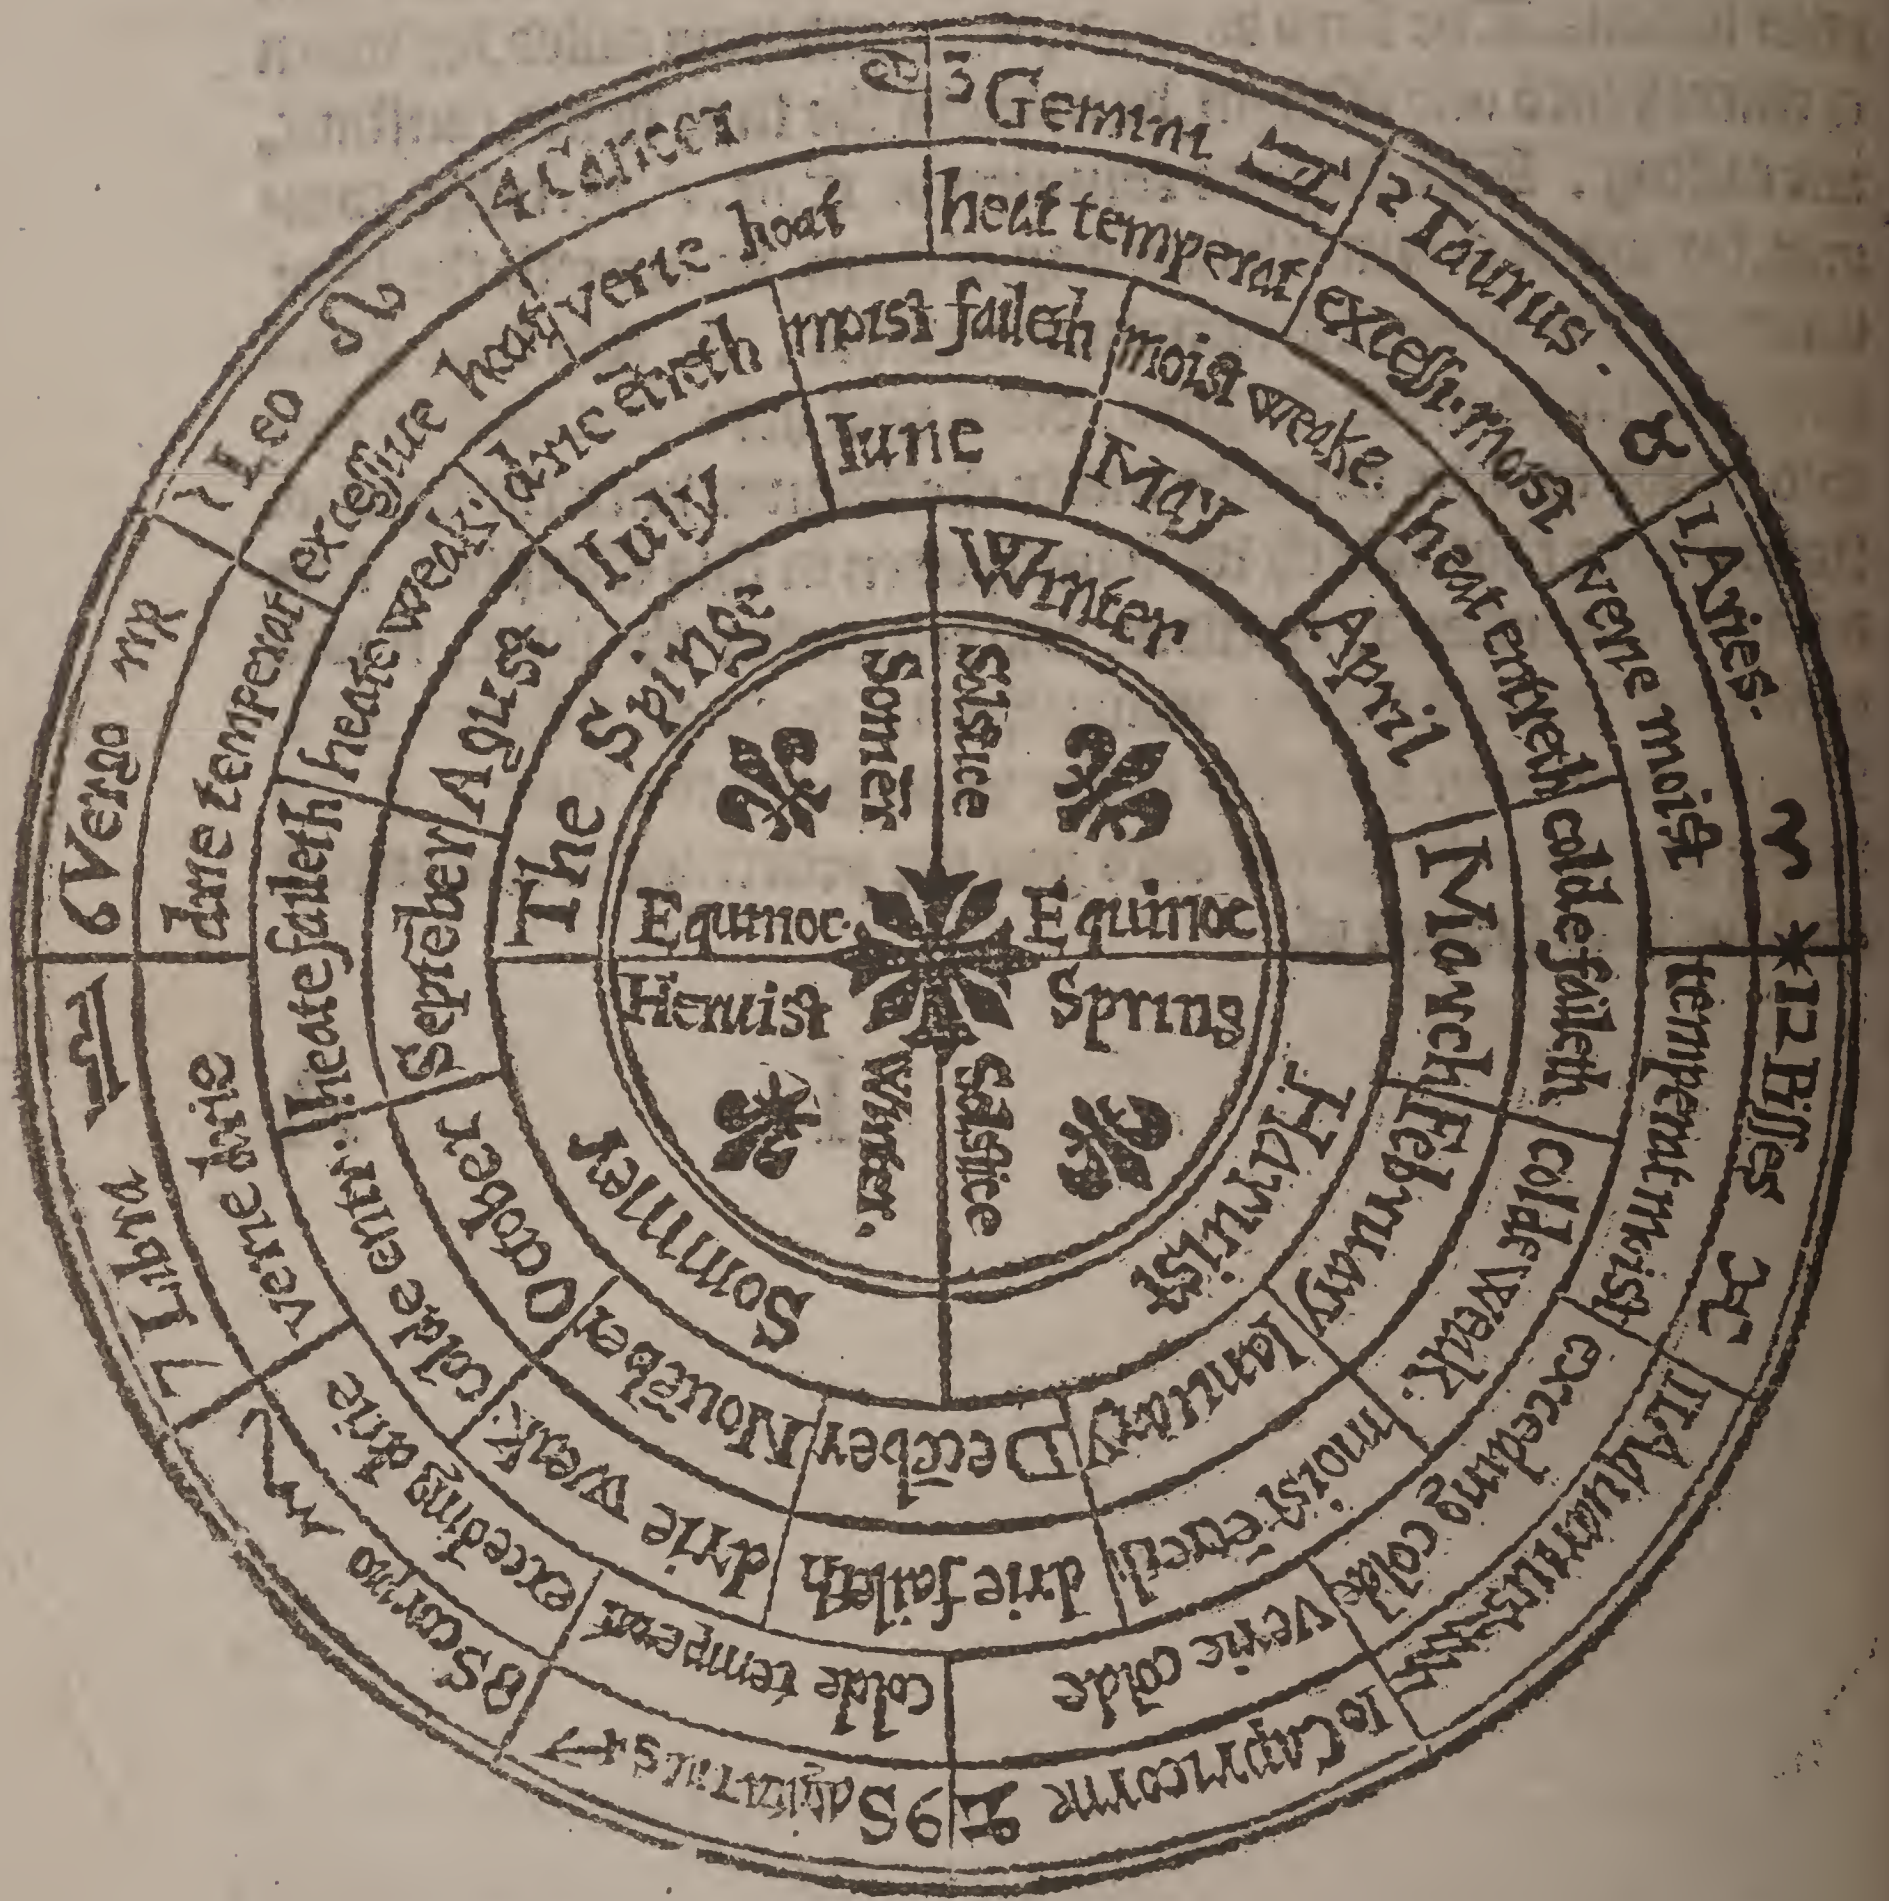 1 Aries. ♈
2 Taurus. ♉
3 Gemini ♊
4 Cancer ♋
Leo ♌
6 Vergo ♍
7 Libra ♎
8 Scorpio ♏
9 Sagitarius ♐
10 Capricorne ♑
11 Aquarius ♒
12 Pisses ♓
verie moist
excessi. moist
heat temperat
verie hoat
excessiue hoat
drie temperat
verie drie
exceding drie
colde temperat
verie colde
exceding colde
temperat moist
colde faileth
heat entreth
moist weake.
moist faileth
drie ētreth
heate weak.
heate faileth
colde entr.
drie weak.
drie faileth
colde weak.
March
April
May
Iune
Iuly
Agust
Septēber
October
Nouēber
Decēber
Ianuary
February
Winter
The Spinge
Sommer
Haruist
Somēr
Solstice
Equinoc.
Equinoc
Heruist
Spring
Winter.
Solstice